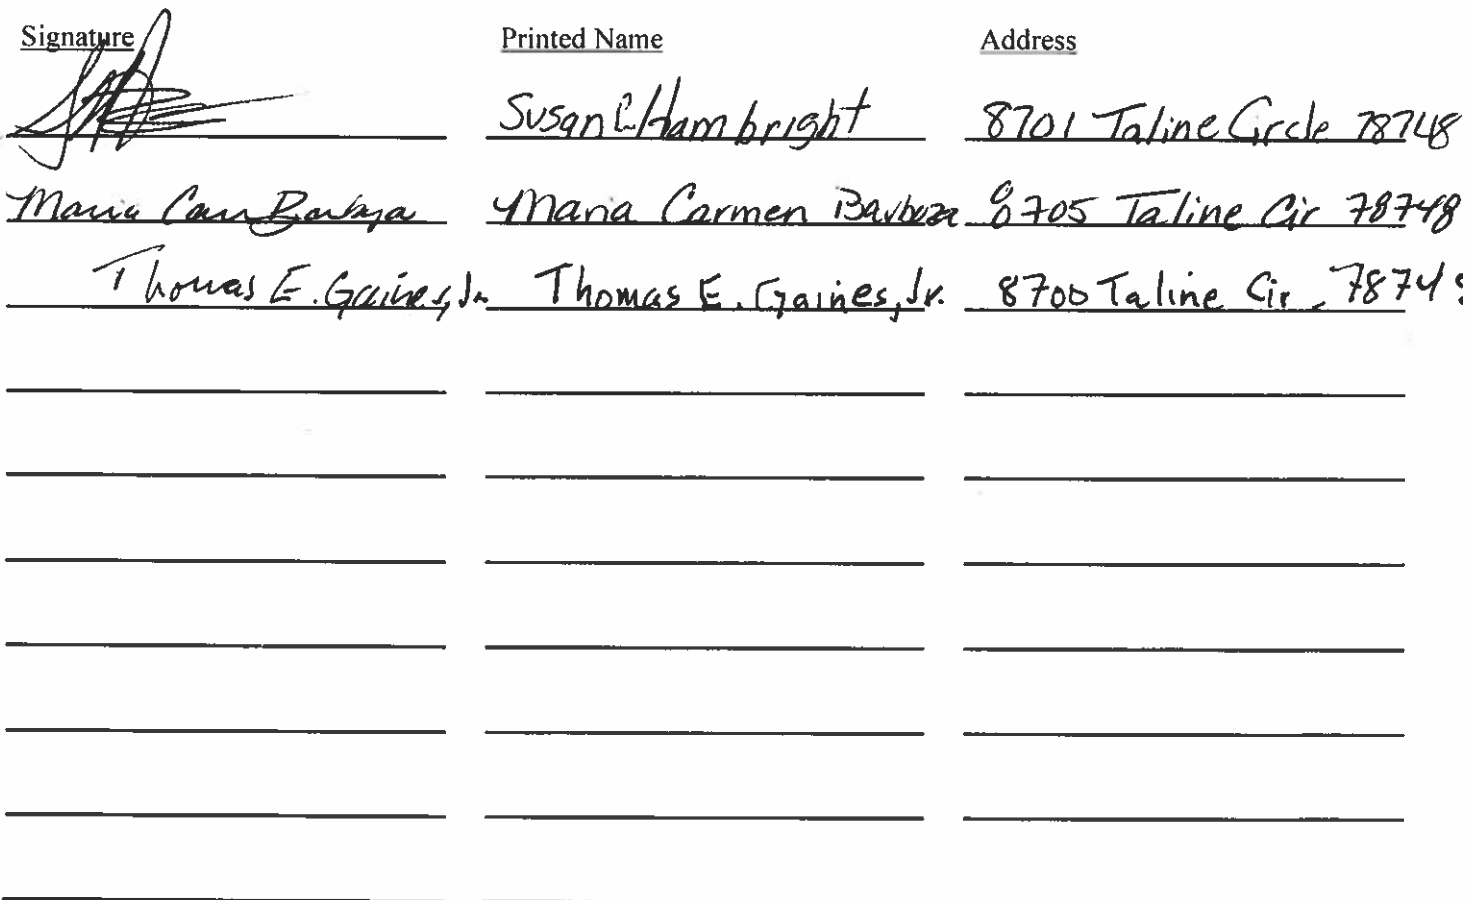 Signature Printed Name Address
Susan C Hambright 8701 Taline Circle 78748
Maria Carmen Barboza 8705 Taline Cir 78748
Thomas E. Gaines, Jr. Thomas E. Gaines, Jr. 8700 Taline Cir - 7874